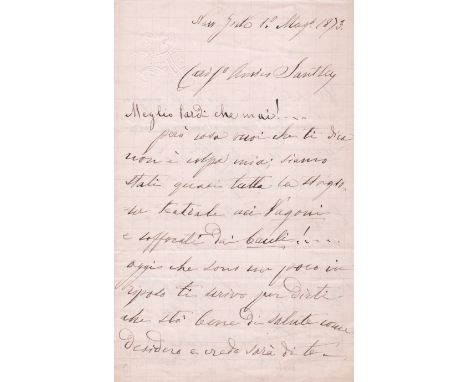 New York 1º Magº 1873.
Cariſº Amico Santley
Meglio tardi che mai!....
però cosa vuoi che ti dica
non è colpa mia; siamo
stati quasi tutta la stagio=
=ne teatrale nei Vagoni
e soffocati dai Bauli!....
oggi che sono un poco in
riposo ti scrivo per dirti
che stò bene di salute come
desidero e credo sarà di te.